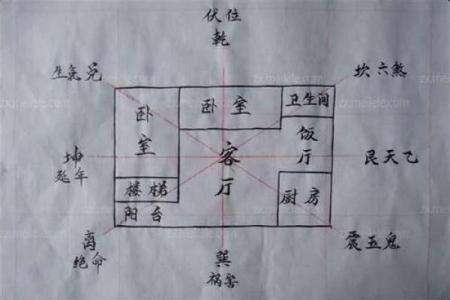 伏位
乾
生氣兑
坎六煞
卧室
卧室
卫生间
饭厅
客厅
坤
延年
艮天乙
楼梯
厨房
阳台
离
绝命
巽
祸害
震五鬼